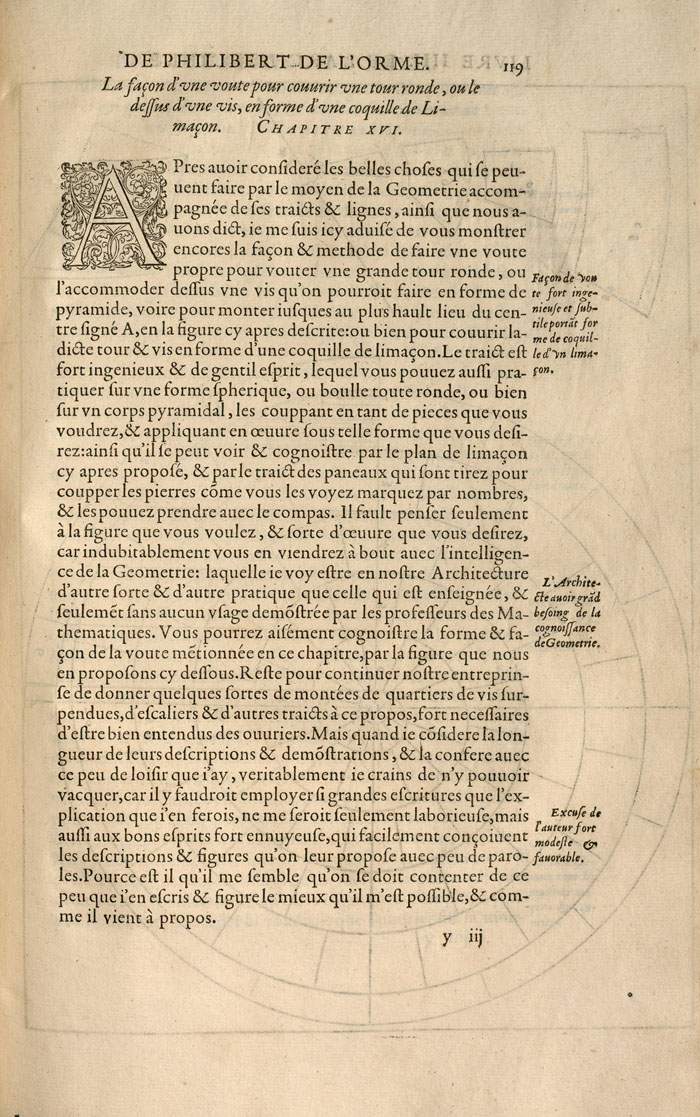 DE PHILIBERT DE L'ORME. 119
La façon d'vne voute pour couurir vne tour ronde, ou le
dessus d'vne vis, en forme d'vne coquille de Li-
maçon. CHAPITRE XVI.
APres auoir consideré les belles choses qui se peu-
uent faire par le moyen de la Geometrie accom-
pagnée de ses traicts & lignes, ainsi que nous a-
uons dict, ie me suis icy aduisé de vous monstrer
encores la façon & methode de faire vne voute
propre pour vouter vne grande tour ronde, ou
l'accommoder dessus vne vis qu'on pourroit faire en forme de
pyramide, voire pour monter iusques au plus hault lieu du cen-
tre signé A, en la figure cy apres descrite: ou bien pour couurir la-
dicte tour & vis en forme d'une coquille de limaçon. Le traict est
fort ingenieux & de gentil esprit, lequel vous pouuez aussi pra-
tiquer sur vne forme spherique, ou boulle toute ronde, ou bien
sur vn corps pyramidal, les couppant en tant de pieces que vous
voudrez, & appliquant en œuure sous telle forme que vous desi-
rez: ainsi qu'il se peut voir & cognoistre par le plan de limaçon
cy apres proposé, & par le traict des paneaux qui sont tirez pour
coupper les pierres cõme vous les voyez marquez par nombres,
& les pouuez prendre auec le compas. Il fault penser seulement
à la figure que vous voulez, & sorte d'œuure que vous desirez,
car indubitablement vous en viendrez à bout auec l'intelligen-
ce de la Geometrie: laquelle ie voy estre en nostre Architecture
d'autre sorte & d'autre pratique que celle qui est enseignée, &
seulemẽt sans aucun vsage demõstrée par les professeurs des Ma-
thematiques. Vous pourrez aisément cognoistre la forme & fa-
çon de la voute mẽtionnée en ce chapitre, par la figure que nous
en proposons cy dessous. Reste pour continuer nostre entreprin-
se de donner quelques sortes de montées de quartiers de vis sur-
pendues, d'escaliers & d'autres traicts à ce propos, fort necessaires
d'estre bien entendus des ouuriers. Mais quand ie cõsidere la lon-
gueur de leurs descriptions & demõstrations, & la confere auec
ce peu de loisir que i'ay, veritablement ie crains de n'y pouuoir
vacquer, car il y faudroit employer si grandes escritures que l'ex-
plication que i'en ferois, ne me seroit seulement laborieuse, mais
aussi aux bons esprits fort ennuyeuse, qui facilement conçoiuent
les descriptions & figures qu'on leur propose auec peu de paro-
les. Pource est il qu'il me semble qu'on se doit contenter de ce
peu que i'en escris & figure le mieux qu'il m'est possible, & com-
me il vient à propos.
Façon de vou
te fort inge-
nieuse et sub-
tile portãt for
me de coquil-
le d'vn lima-
çon.
L'Archite-
cte auoir grãd
besoing de la
cognoissance
de Geometrie.
Excuse de
l'auteur fort
modeste &
fauorable.
y iij